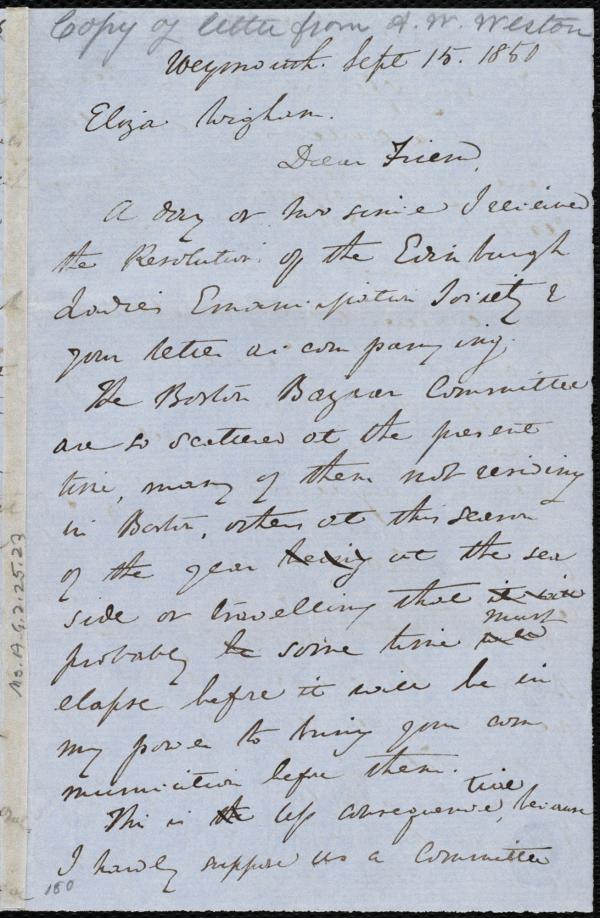 Copy of letter from A. W. Weston
Weymouth. Sept 15. 1850
Eliza Wigham.
Dear Friend,
A day or two since I received
the Resolution of the Edinburgh
Ladies Emancipation Society &
your letter accompanying.
The Boston Bazaar Committee
are so scattered at the present
time, many of them not residing
in Boston, others at this season
of the year being at the sea
side or travelling that it will
must
probably be some time will
elapse before it will be in
my power to bring your com
munication before them.
tive
This is the less consequence, because
I hardly suppose as a Committee
No. A.9.2.25.23
150